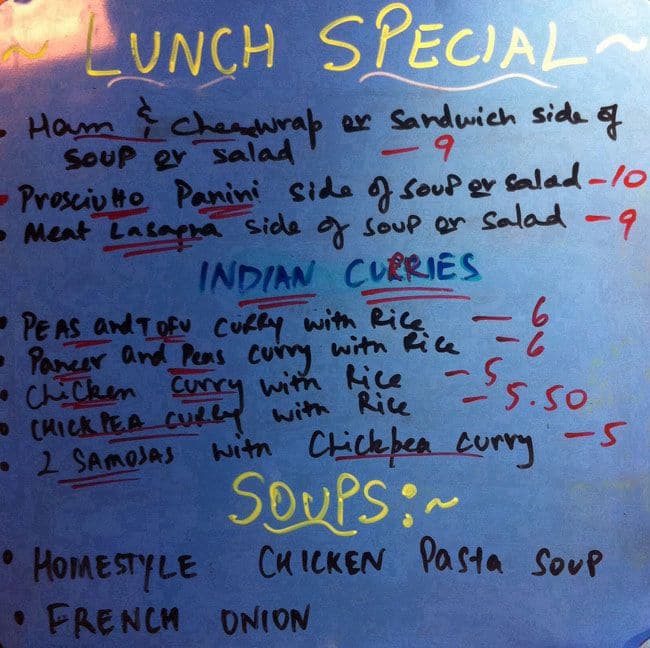 ~ LUNCH SPECIAL ~
• Ham & Cheese wrap or Sandwich side of
soup or salad — 9
• Prosciutto Panini side of soup or salad - 10
• Meat Lasagna side of soup or salad - 9
INDIAN CURRIES
• PEAS and TOFU CURRY with Rice — 6
• Paneer and Peas curry with Rice - 6
• Chicken curry with Rice - 5
• CHICKPEA CURRY with Rice - 5.50
• 2 SAMOSAS with Chickpea curry - 5
SOUPS:~
• HOMESTYLE CHICKEN Pasta SOUP
• FRENCH ONION